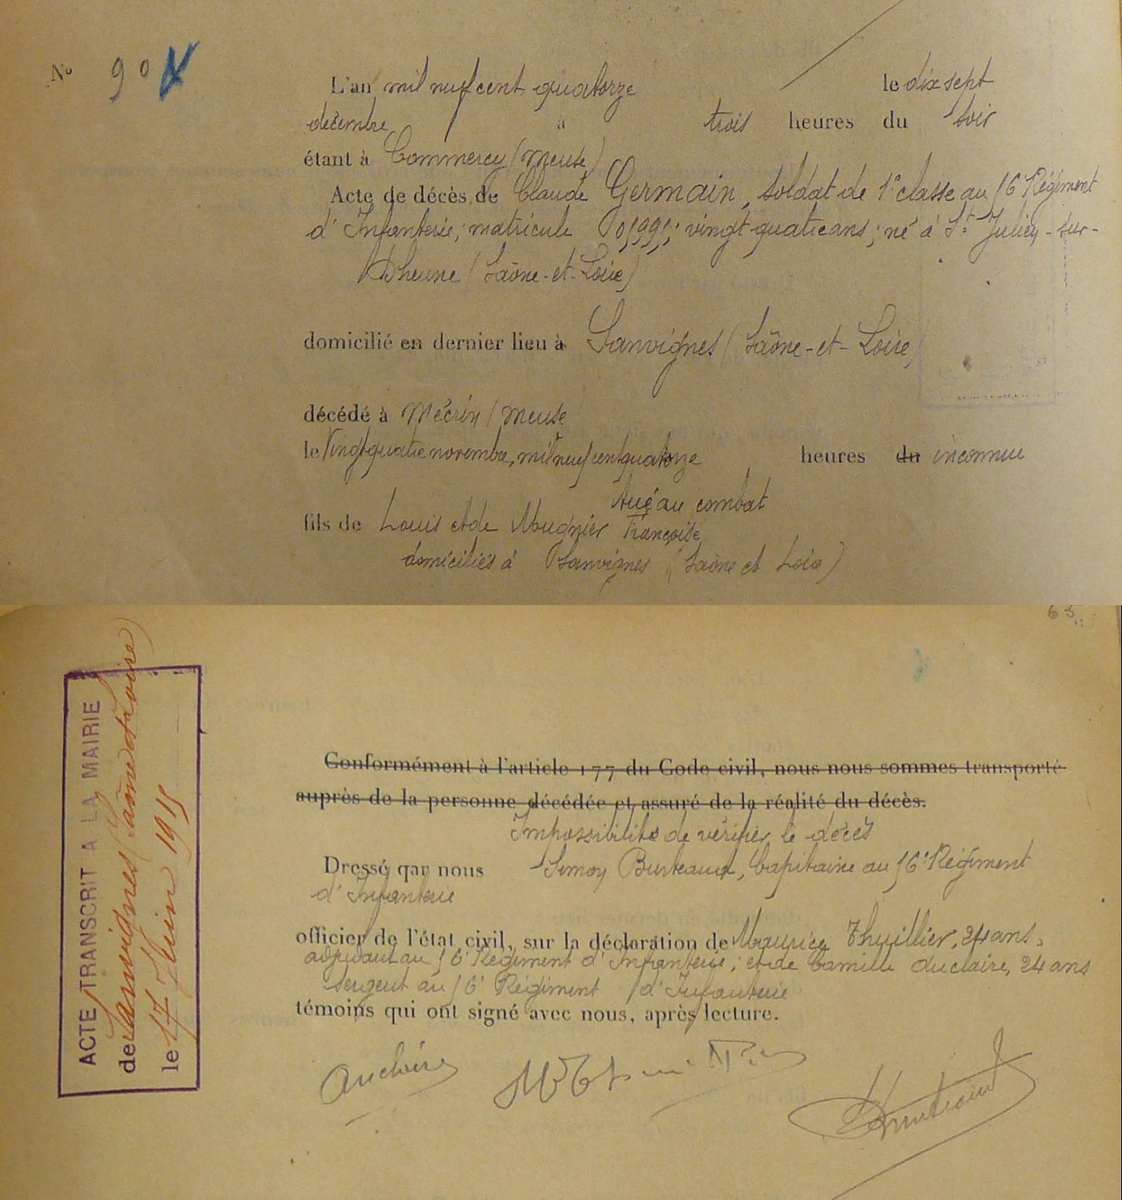 N° 90
L'an mil neuf cent quatorze le dix sept
décembre à trois heures du soir
étant à Commercy (Meuse)
Acte de décès de Claude Germain, soldat de 1e classe au 16e Régiment
d'Infanterie, matricule ; vingt quatre ans ; né à St Julien-sur-
Dheune (Saône-et-Loire)
domicilié en dernier lieu à Sanvignes (Saône-et-Loire)
décédé à Mécrin (Meuse
le vingt quatre novembre, mil neuf cent quatorze, heures du inconnue
tué au combat
fils de Louis et de Mugnier Françoise
domiciliés à Sanvignes (Saône et Loire)
ACTE TRANSCRIT A LA MAIRIE
de Sanvignes (Saône et Loire)
le 17 Juin 1915
Conformément à l'article 77 du Code civil, nous nous sommes transporté
auprès de la personne décédée et assuré de la réalité du décès.
Impossibilité de vérifier le décès
Dressé par nous Simon Burteaux, Capitaine au 16e Régiment
d'Infanterie
officier de l'état civil, sur la déclaration de Maurice Thuillier, 24 ans,
adjudant au 16e Régiment d'Infanterie ; et de Camille Auclaire, 24 ans
sergent au 16e Régiment d'Infanterie
témoins qui ont signé avec nous, après lecture.